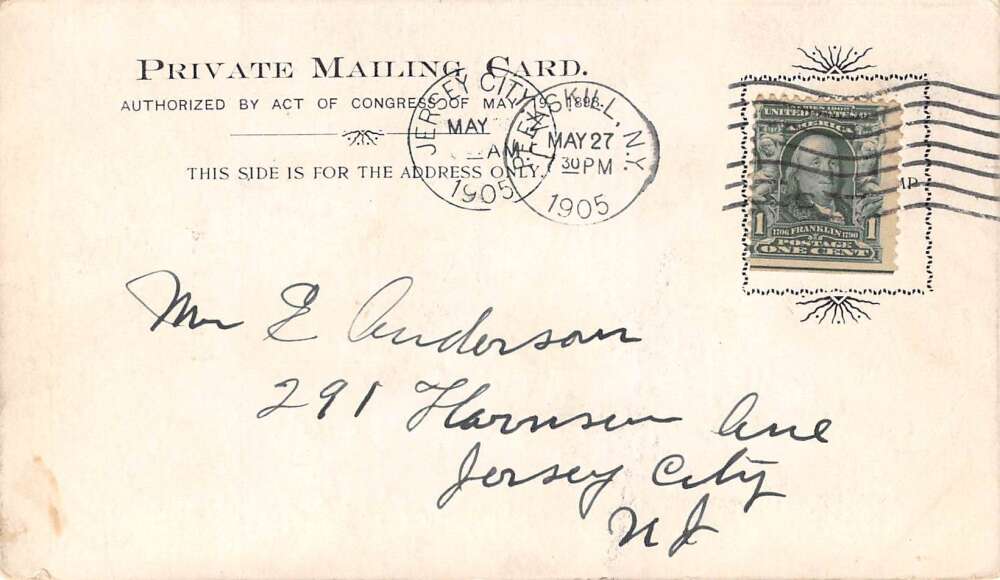 PRIVATE MAILING CARD.
AUTHORIZED BY ACT OF CONGRESS OF MAY 19, 1898.
THIS SIDE IS FOR THE ADDRESS ONLY.
JERSEY CITY
MAY
AM
1905
PEEKSKILL, N.Y.
MAY 27
7 30 PM
1905
SERIES 1902
UNITED STATES OF
AMERICA
1 1
1706 FRANKLIN 1790
POSTAGE
ONE CENT
Mr E Anderson
291 Harrison Ave
Jersey City
N J